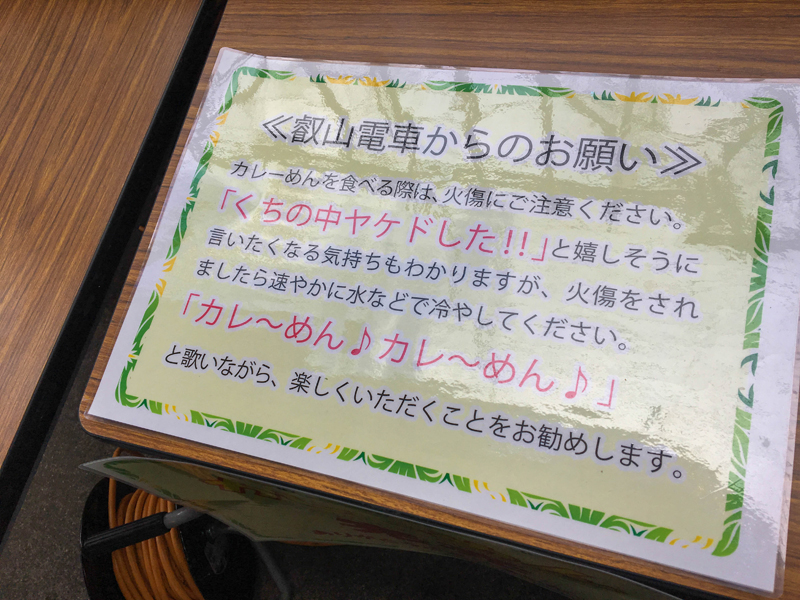 ≪叡山電車からのお願い≫
カレーめんを食べる際は、火傷にご注意ください。
「くちの中ヤケドした!!」と嬉しそうに
言いたくなる気持ちもわかりますが、火傷をされ
ましたら速やかに水などで冷やしてください。
「カレ〜めん♪カレ〜めん♪」
と歌いながら、楽しくいただくことをお勧めします。